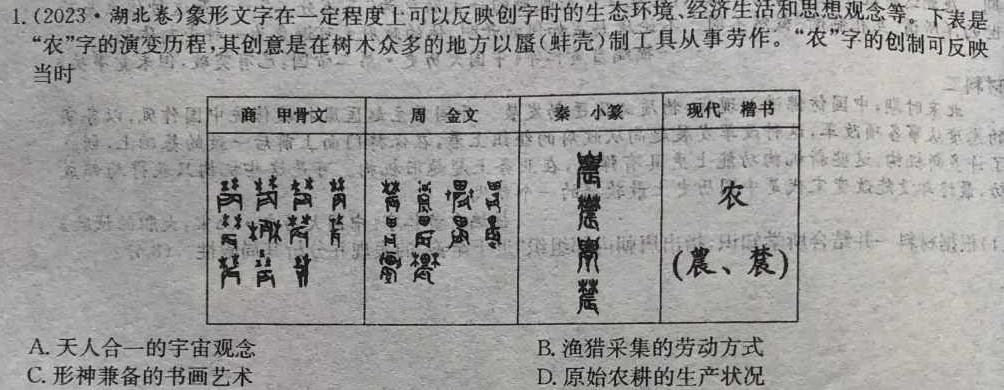 1.(2023·湖北卷)象形文字在一定程度上可以反映创字时的生态环境、经济生活和思想观念等。下表是
“农”字的演变历程,其创意是在树木众多的地方以蜃(蚌壳)制工具从事劳作。“农”字的创制可反映
当时
商 甲骨文 周 金文 秦 小篆 现代 楷书
农
(農、莀)
A. 天人合一的宇宙观念 B. 渔猎采集的劳动方式
C. 形神兼备的书画艺术 D. 原始农耕的生产状况